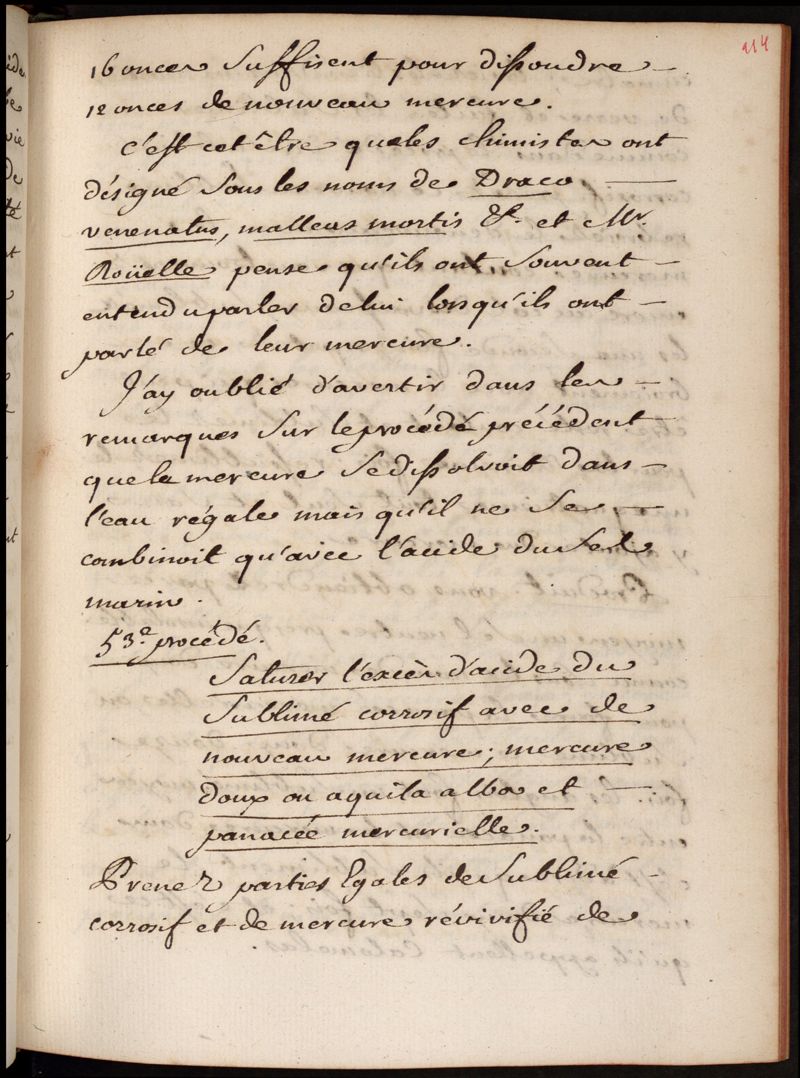 914
16 onces Suffisent pour dissoudre
12 onces de nouveau mercure.
c'est cet être que les chimistes ont
désigné Sous les noms de Draco
venenatus, malleus mortis &c. et Mr.
Roüelle pense qu'ils ont Souvent
entendu parler de lui lorsqu'ils ont
parlé de leur mercure.
J'ay oublié d'avertir dans les
remarques Sur le procédé précédent
que la mercure Se dissolvoit dans
l'eau régale mais qu'il ne Se
combinoit qu'avec l'acide du Sel
marin.
53e procédé.
Saturer l'excès d'acide du
Sublimé corrosif avec de
nouveau mercure; mercure
doux ou aquila alba et
panacée mercurielle.
Prenez parties Egales de Sublimé
corrosif et de mercure révivifié de